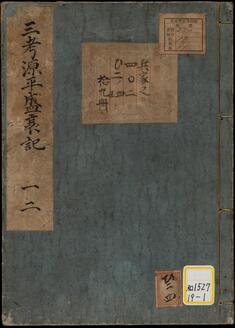 三考源平盛衰記 一二
兵家之
四〇二
ひ二ノ四
拾九冊
ひ二ノ四
AO1527
19-1